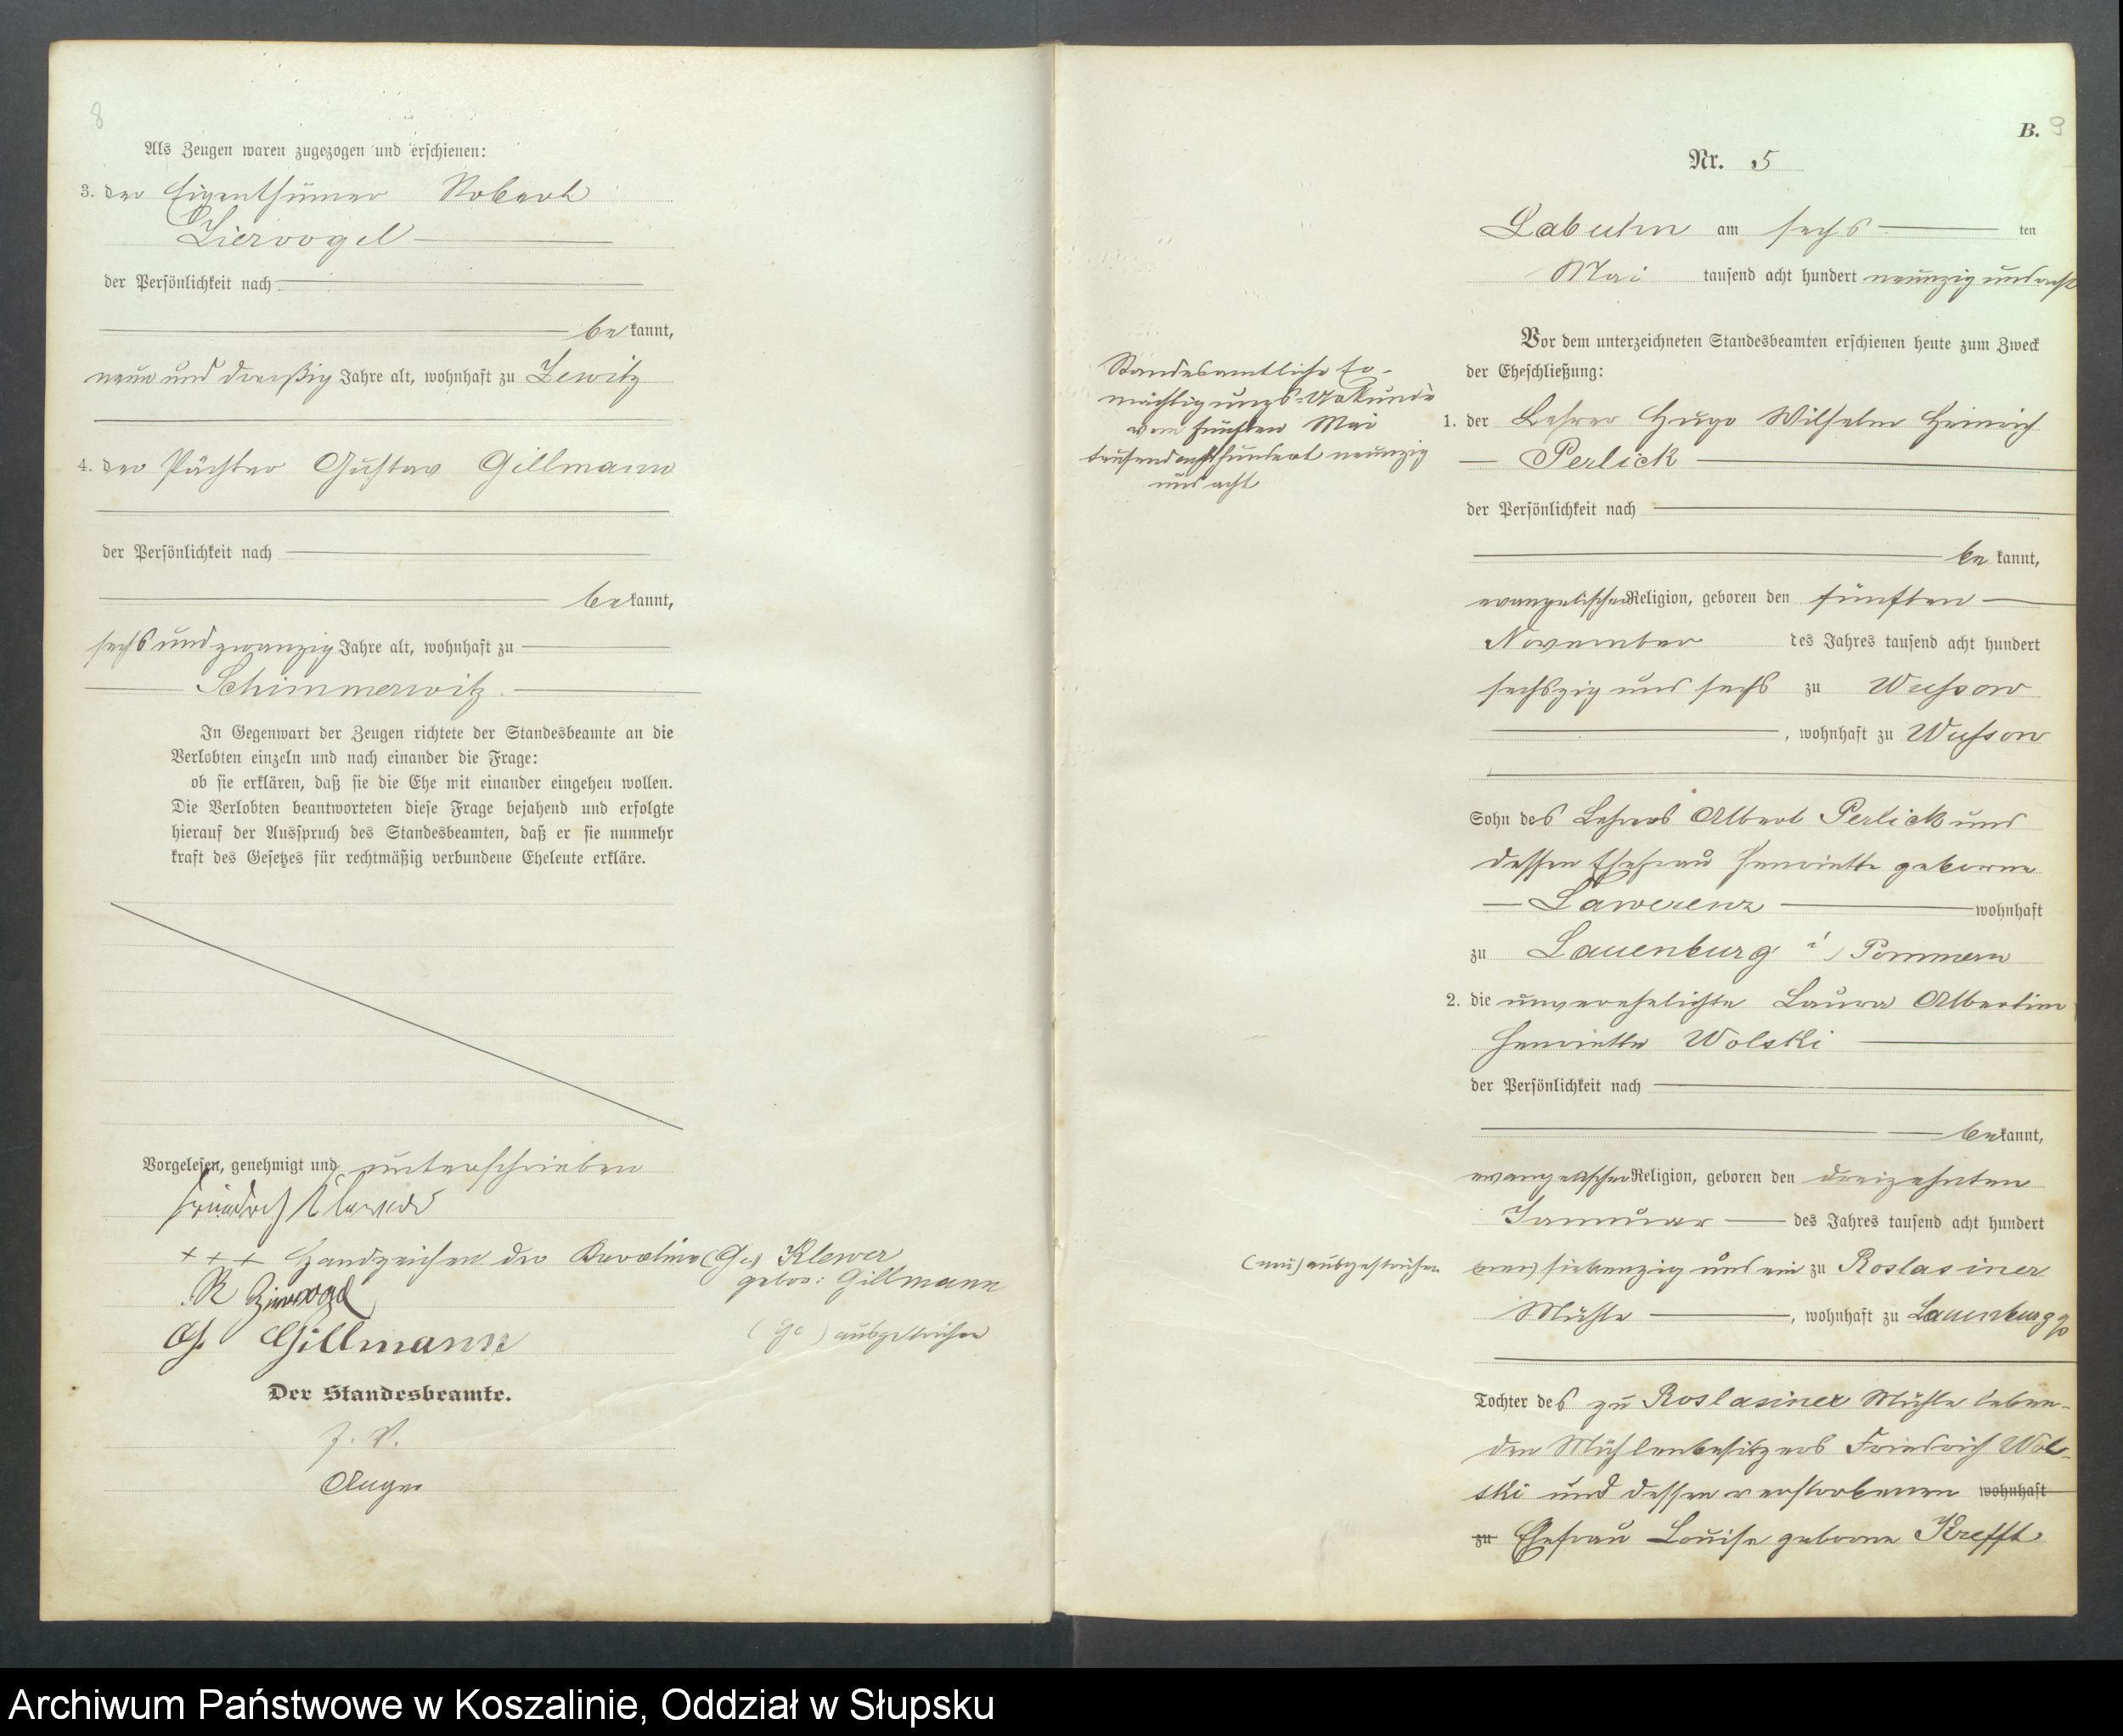 8
Als Zeugen waren zugezogen und erschienen:
3. der Eigenthümer Robert
Ziervogel
der Persönlichkeit nach
be kannt,
neun und dreißig Jahre alt, wohnhaft zu Zewitz
4. der Pächter Gustav Gillmann
der Persönlichkeit nach
be kannt,
sechs und zwanzig Jahre alt, wohnhaft zu
Schimmerwitz.
In Gegenwart der Zeugen richtete der Standesbeamte an die
Verlobten einzeln und nach einander die Frage:
ob sie erklären, daß sie die Ehe mit einander eingehen wollen.
Die Verlobten beantworteten diese Frage bejahend und erfolgte
hierauf der Ausspruch des Standesbeamten, daß er sie nunmehr
kraft des Gesetzes für rechtmäßig verbundene Eheleute erkläre.
Vorgelesen, genehmigt und unterschrieben
Friedrich Klewer
+ + + Handzeichen der Karoline (Ge) Klewer
gebor: Gillmann
R Ziervogel
(Ge) ausgestrichen
G. Gillmann
Der Standesbeamte.
J. V.
B. 9
Nr. 5
Labuhn am sechs ten
Mai tausend acht hundert neunzig und acht
Vor dem unterzeichneten Standesbeamten erschienen heute zum Zweck
der Eheschließung:
Standesamtliche Er-
mächtigungs-Urkunde
vom fünften Mai
tausendachthundert neunzig
und acht
1. der Lehrer Hugo Wilhelm Heinrich
Perlick
der Persönlichkeit nach
be kannt,
evangelischer Religion, geboren den fünften
November des Jahres tausend acht hundert
sechszig und sechs zu Wussow
, wohnhaft zu Wussow
Sohn des Lehrers Albert Perlick und
dessen Ehefrau Henriette geborene
Lawerenz wohnhaft
zu Lauenburg i/ Pommern
2. die unverehelichte Laura Albertine
Henriette Wolski
der Persönlichkeit nach
be kannt,
evangelischer Religion, geboren den dreizehnten
Januar des Jahres tausend acht hundert
(neu) ausgestrichen
(neu) siebenzig und ein zu Roslasiner
Mühle , wohnhaft zu Lauenburg
Tochter des zu Roslasiner Mühle leben-
den Mühlenbesitzers Friedrich Wol-
ski und dessen verstorbenen wohnhaft
zu Ehefrau Louise geborne Krefft
Archiwum Państwowe w Koszalinie, Oddział w Słupsku